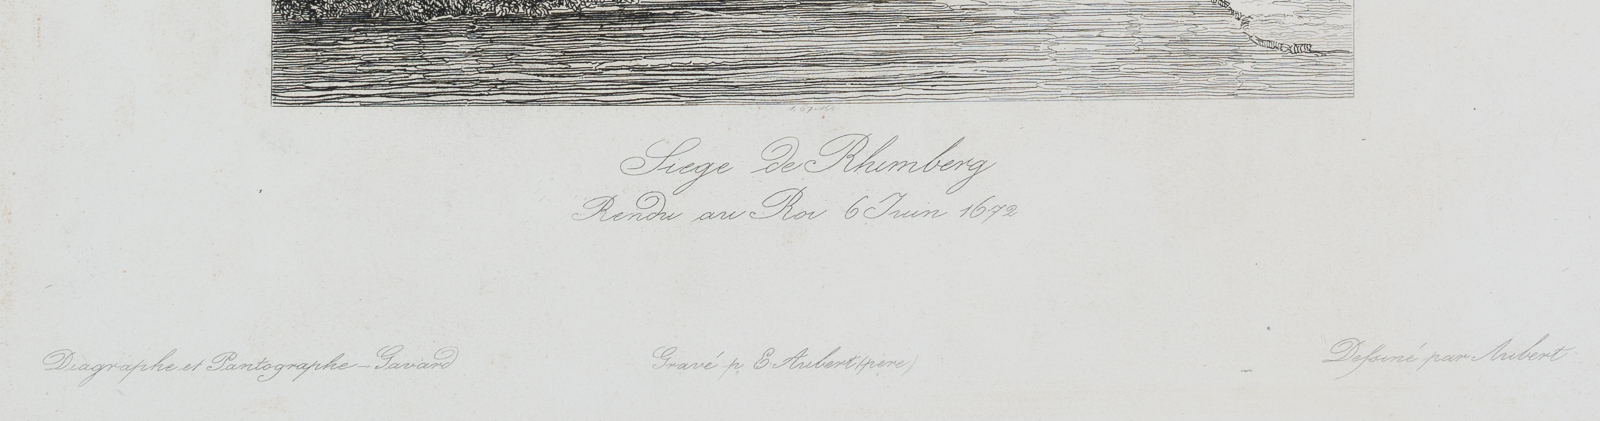 Siege de Rhimberg
Rendu au Roi 6 Juin 1672
Diagraphe et Pantographe - Gavard
Gravé p. E. Aubert (père)
Dessiné par Aubert